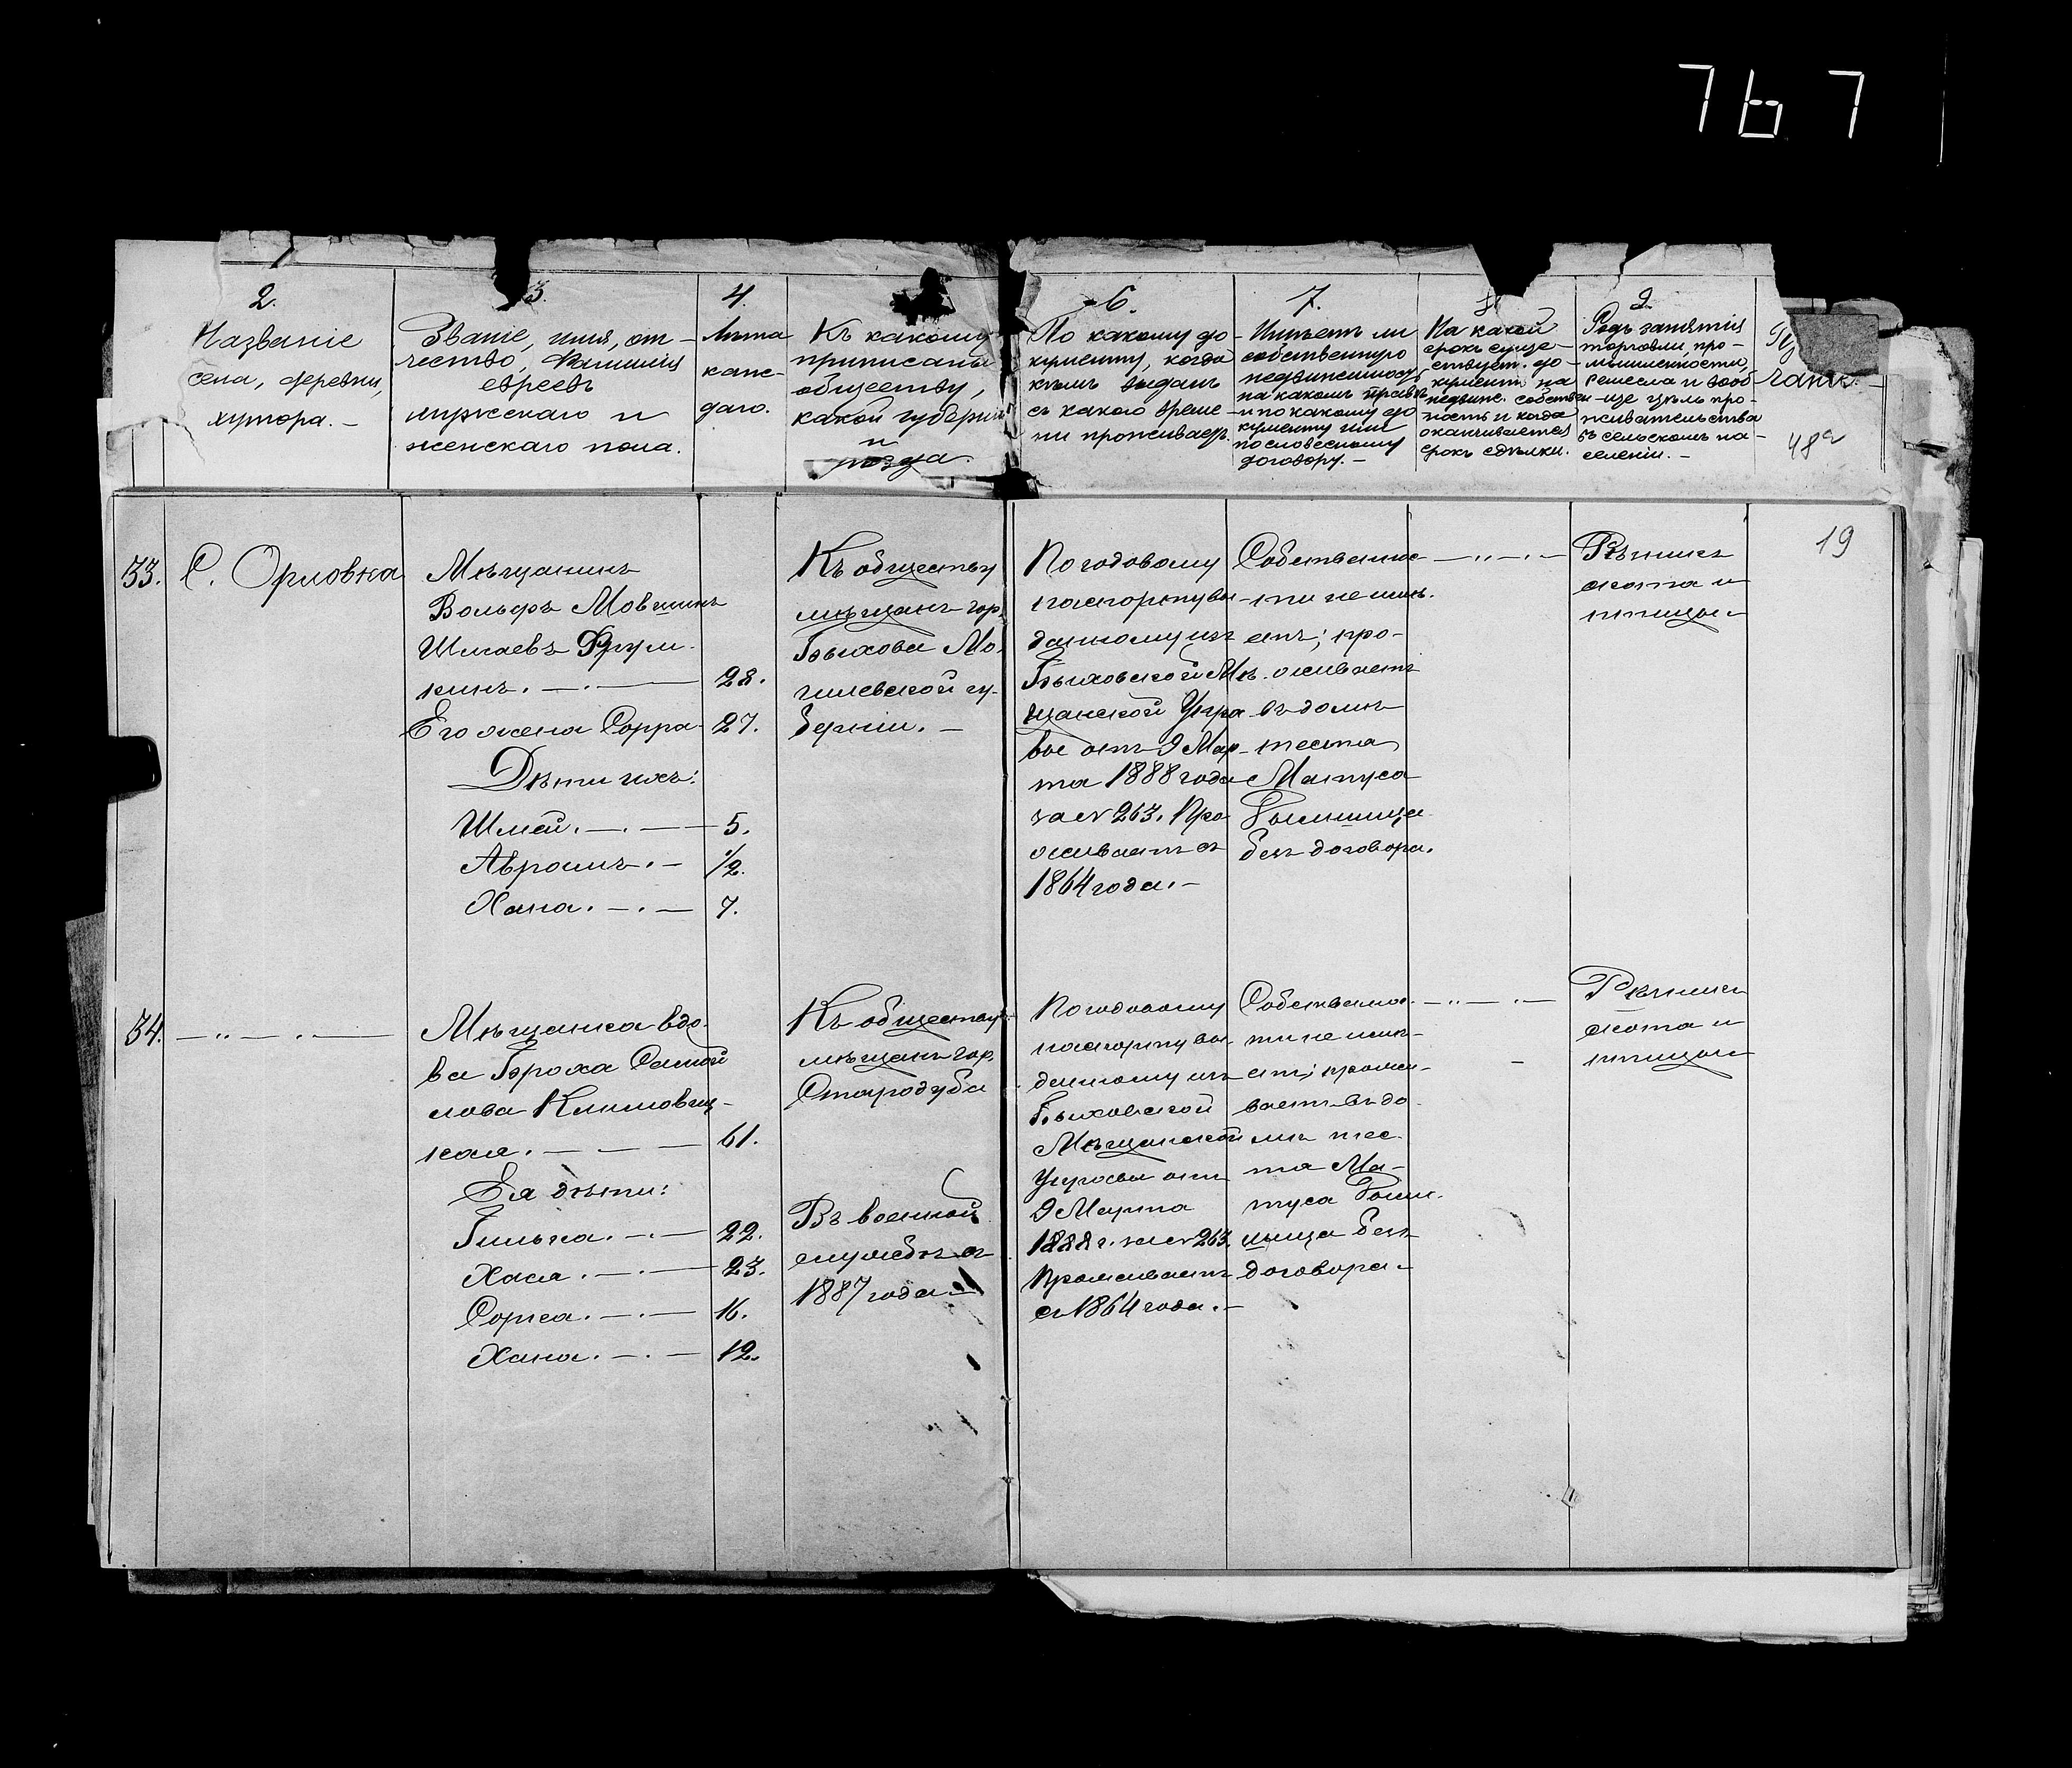 767
2.
Названіе
села, деревни,
хутора. —
3.
Званіе, имя, от-
чество, Фамилия
евреевъ
мужскаго и
женскаго пола.
4.
Лѣта
каж-
даго.
Къ какому
приписаны
обществу,
какой губерніи
и
уѣзда.
6.
По какому до-
кументу, когда
кѣмъ выданъ
съ какого време-
ни проживаетъ.
7.
Имѣетъ ли
собственную
недвижимость
на какомъ правѣ
и по какому до
кументу или
по словесному
договору. —
На какой
срокъ суще-
ствует. до-
кументъ на
недвиж. собствен
ность и когда
оканчивается
срокъ сдѣлки.
9.
Родъ занятія
торговли, про-
мышленности,
ремесла и вооб
-ще цѣль про-
живательства
въ сельскомъ на-
селеніи. —
чаніе. —
48а
19
33.
С. Орловка
Мѣщанинъ
Вольфъ Мовшинъ
Шмаевъ Фрум-
кинъ. — . — 28.
Его жена Сорра 27.
Дѣти ихъ:
Шмай. — . — 5.
Аврамъ. — 1/2.
Хана. — . — 7.
Къ обществу
мѣщанъ гор.
Быхова Мо-
гилевской гу-
берніи. —
По годовому
паспорту вы-
данному изъ
Быховской Мѣ-
щанской Упра-
вы отъ 9 Мар-
та 1888 года
за № 263. Про
живаетъ съ
1864 года. —
Собственнос-
ти не имѣ-
етъ; про-
живаетъ
въ домѣ
тестя
Матуса
без договора.
— „ — . —
Рѣзникъ
скота и
птицы
34.
— „ — . —
Мѣщанка вдо-
ва Броха Самой
лова Климовиц-
кая. — — 61.
Ея дѣти:
Гилька. — . — 22.
Хася. — . — 23.
Сорка. — . — 16.
Хана. — . — 12.
Къ обществу
мѣщанъ гор.
Стародуба
Въ военной
службѣ съ
1887 года —
По годовому
паспорту вы-
данному изъ
Быховской
Мѣщанской
Управы отъ
9 Марта
1888 г. за № 263.
Проживаетъ
съ 1864 года. —
Собственнос-
ти не имѣ-
етъ; прожи-
ваетъ въ до-
мѣ тес-
тя Ма-
туса
без
договора —
— „ — . —
Рѣзникъ
скота и
птицы